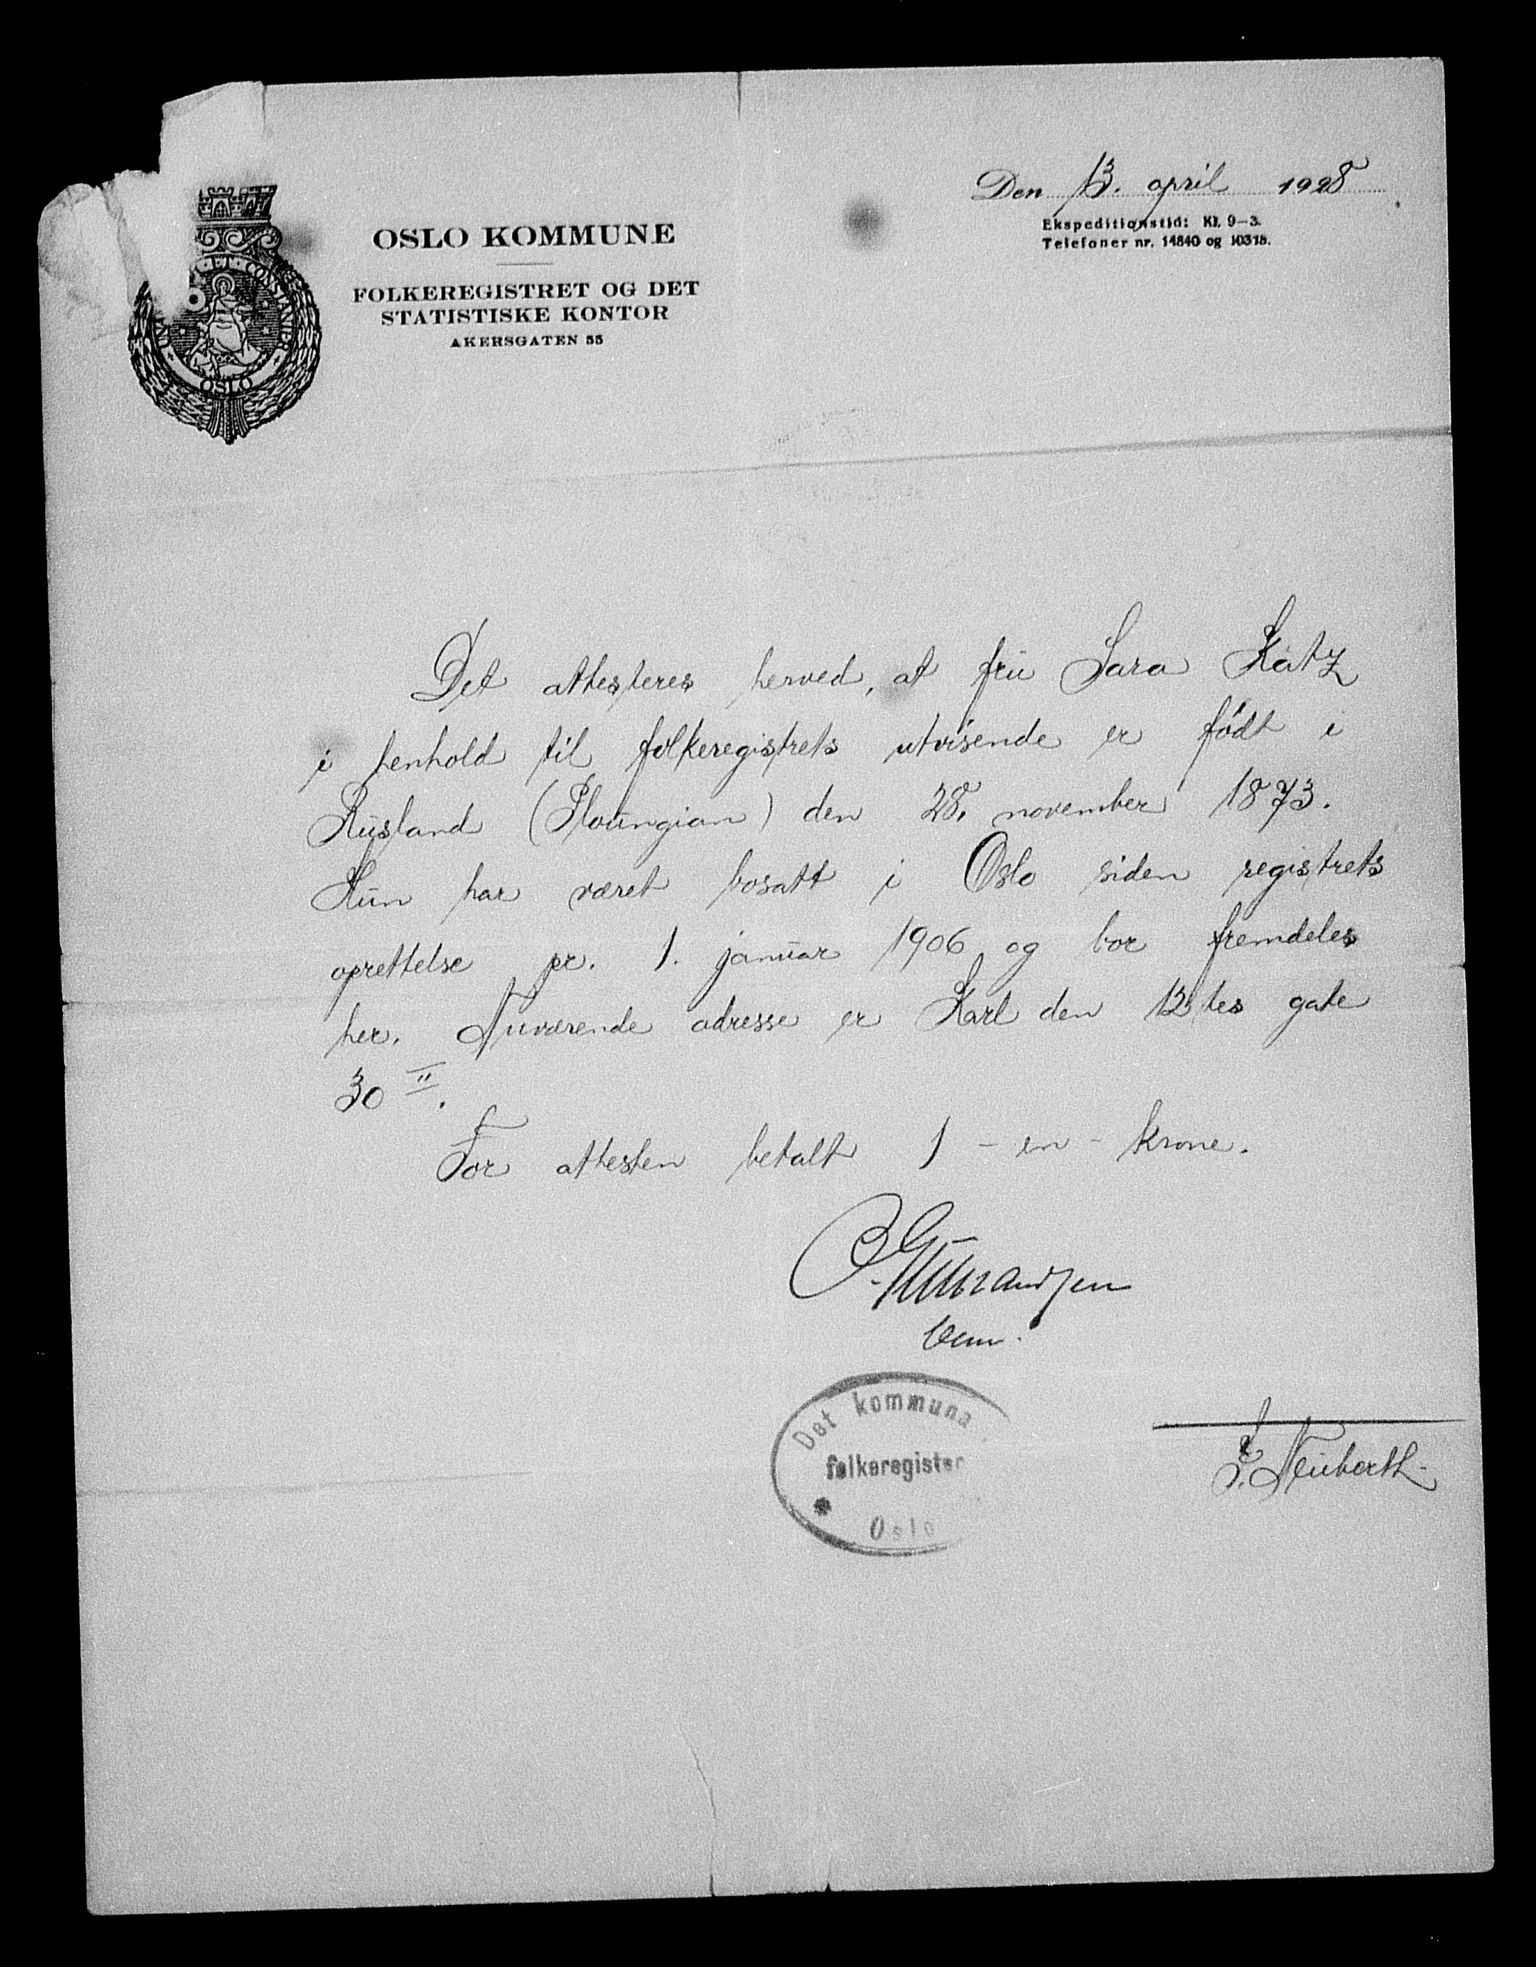 Den 13. april 1928
Ekspeditionstid: Kl. 9-3.
Telefoner nr. 14840 og 10318.
OSLO KOMMUNE
FOLKEREGISTRET OG DET
STATISTISKE KONTOR
AKERSGATEN 55
ET CONSTANTER
OSLO
Det attesteres herved, at fru Sara Katz
i henhold til folkeregistrets utvisende er født i
Rusland (Ploungian) den 28. november 1873.
Hun har været bosatt i Oslo siden registrets
oprettelse pr. 1. januar 1906 og bor fremdeles
her. Nuværende adresse er Karl den 12tes gate
30 II.
For attesten betalt 1 - en - krone.
Det kommuna
folkeregister
Oslo
Neuberth.